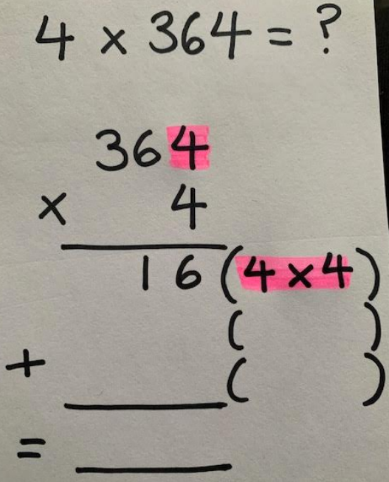 4 × 364 = ?
364
× 4
16 (4×4)
( )
+ ( )
=